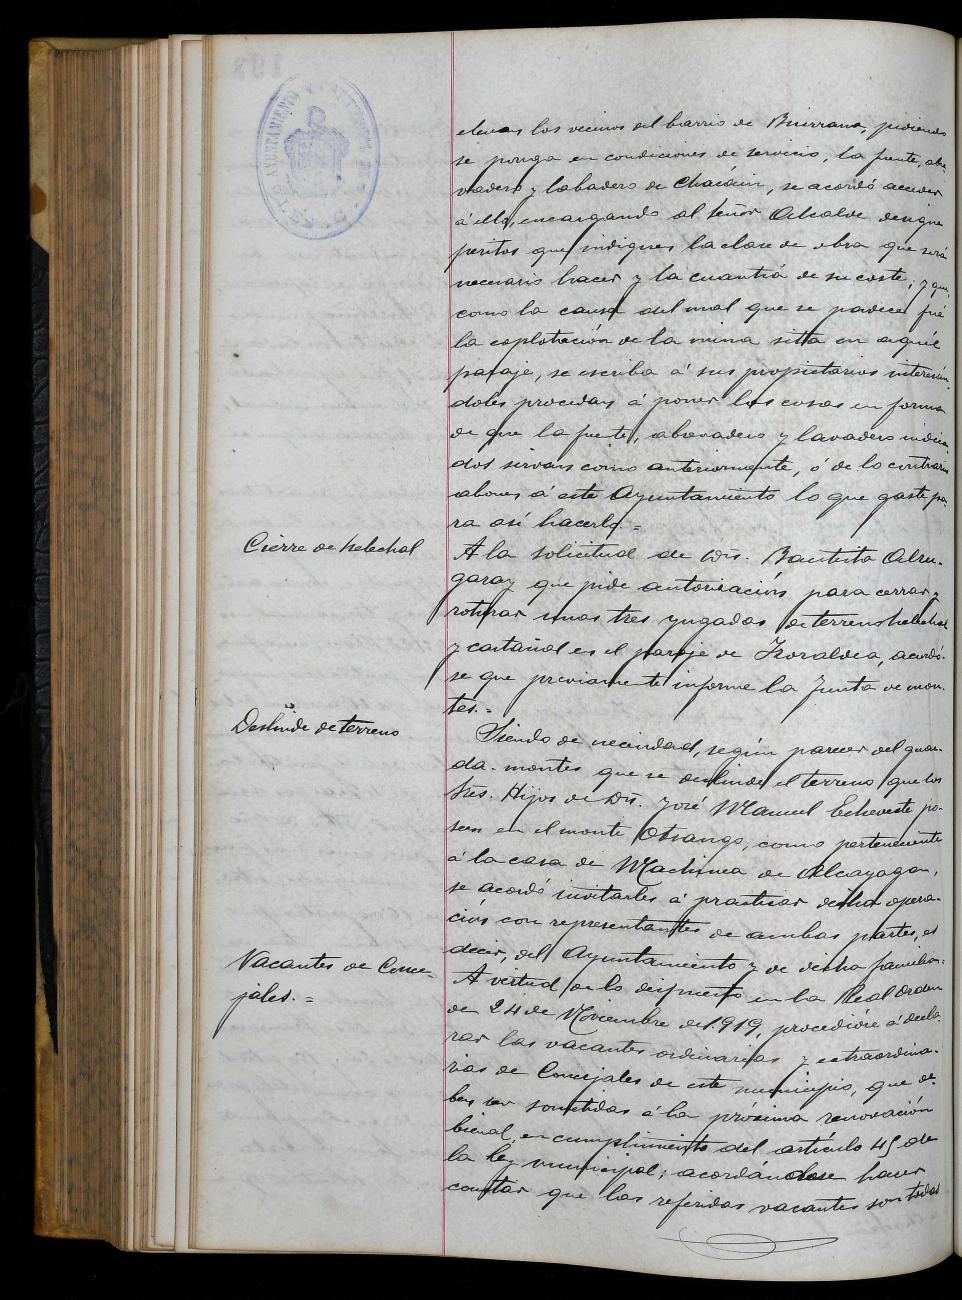 elevan los vecinos del barrio de Buirrana, pidiendo
se ponga en condiciones de servicio, la fuente, abre-
vadero y labadero de Chacáin, se acordó acceder
á ello, encargando al Señor Alcalde designe
peritos que indiquen la clase de obra que será
necesario hacer y la cuantiá de su coste; y que,
como la causa del mal que se padece fué
la esplotación de la mina sitta en aquél
paraje, se escriba á sus propietarios interesán-
doles procedan á poner las cosas en forma
de que la fuente, abrevadero y lavadero indica-
dos sirvan como anteriormente, ó de lo contrario
abonen á este Ayuntamiento lo que gaste pa-
ra así hacerlo.=
Cierre de helechal
A la solicitud de Dn. Bautista
que pide autorización para cerrar y
roturar unas tres yugadas de terreno helechal
y castañal en el paraje de Izoraldea, acordó-
se que previamente informe la Junta de mon-
tes.=
Deslinde de terreno
Siendo de necesidad, según parecer del guar-
da-montes que se deslinde el terreno que los
Sres. Hijos de Dn. José Manuel Echeveste po-
seen en el monte Otsango, como perteneciente
á la casa de Machinea de Alcayaga,
se acordó invitarles á practicar dicha opera-
ción con representantes de ambas partes, es
decir, del Ayuntamiento y de dicha familia.=
Vacantes de Conce-
jales.=
A virtud de lo dispuesto en la Real Orden
de 24 de Noviembre de 1.919, procedióse á decla-
rar las vacantes ordinarias y extraordina-
rias de Concejales de este municipio, que de-
ben ser sometidas á la proxima renovación
bienal, en cumplimiento del artículo 45 de
la ley municipal; acordándose hacer
constar que las referidas vacantes son todas